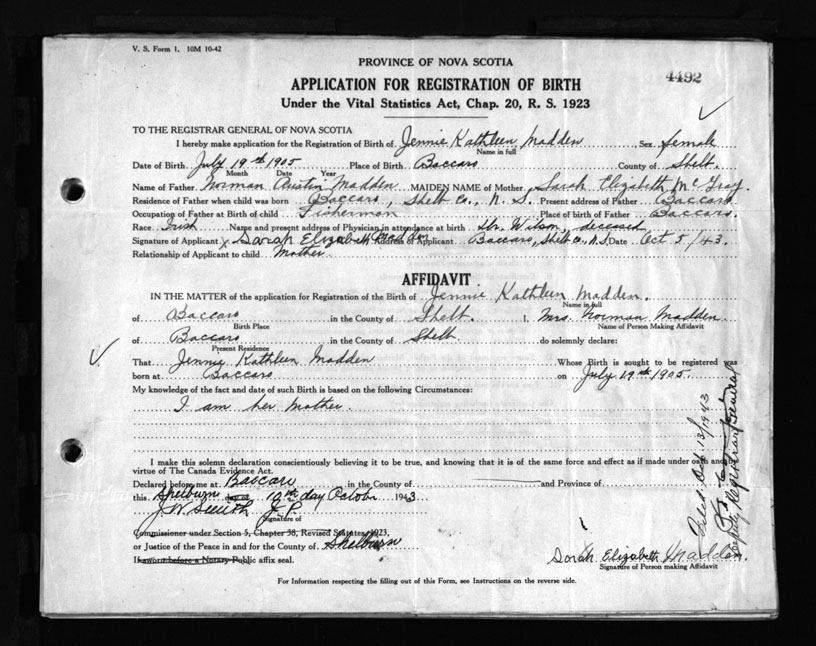 V. S. Form 1. 10M 10-42
PROVINCE OF NOVA SCOTIA
4492
APPLICATION FOR REGISTRATION OF BIRTH
Under the Vital Statistics Act, Chap. 20, R. S. 1923
TO THE REGISTRAR GENERAL OF NOVA SCOTIA
I hereby make application for the Registration of Birth of Jennie Kathleen Madden Sex Female
Name in full
Date of Birth July 19th 1905 Place of Birth Baccaro County of Shelb.
Month Date Year
Name of Father Norman Austin Madden MAIDEN NAME of Mother Sarah Elizabeth McGray.
Residence of Father when child was born Baccaro, Shelb Co., N. S. Present address of Father Baccaro
Occupation of Father at Birth of child Fisherman Place of birth of Father Baccaro.
Race Irish Name and present address of Physician in attendance at birth Dr. Wilson, deceased
Signature of Applicant x Sarah Elizabeth Madden Address of Applicant Baccaro, Shelb Co., N.S Date Oct 5/43.
Relationship of Applicant to child Mother.
AFFIDAVIT
IN THE MATTER of the application for Registration of the Birth of Jennie Kathleen Madden.
Name in full
of Baccaro in the County of Shelb. I, Mrs. Norman Madden.
Birth Place Name of Person Making Affidavit
of Baccaro in the County of Shelb. do solemnly declare:
Present Residence
That Jennie Kathleen Madden Whose Birth is sought to be registered was
born at Baccaro on July 19th 1905.
My knowledge of the fact and date of such Birth is based on the following Circumstances:
I am her Mother.
I make this solemn declaration conscientiously believing it to be true, and knowing that it is of the same force and effect as if made under oath and by
virtue of The Canada Evidence Act.
Declared before me at Baccaro in the County of and Province of
this Shelburn day of 12th day October 1943
J. P.
Signature of
Commissioner under Section 5, Chapter 38, Revised Statutes 1923,
or Justice of the Peace in and for the County of Shelburn
If sworn before a Notary Public affix seal.
Sarah Elizabeth Madden.
Signature of Person making Affidavit
For Information respecting the filling out of this Form, see Instructions on the reverse side.
Filed Oct 13/1943
Deputy Registrar General